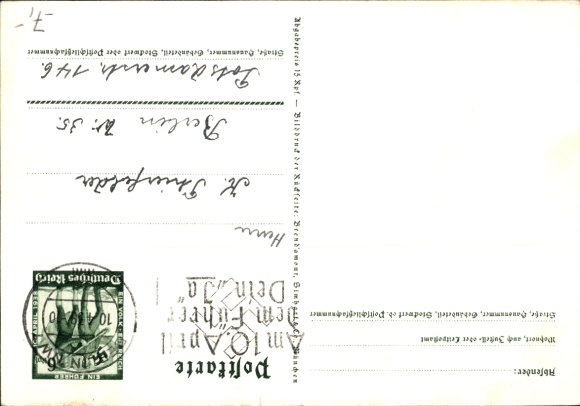 Postkarte
Absender:
Wohnort, auch Zustell- oder Leitpostamt
Straße, Hausnummer, Gebäudeteil, Stockwerk od. Postschließfachnummer
EIN VOLK
EIN REICH
EIN FÜHRER
Deutsches Reich
6
10.4.38
Am 10. April
dem Führer
Dein „Ja"
Herrn
K. Thierfelder
Berlin W. 35.
Potsdamerstr. 146.
Straße, Hausnummer, Gebäudeteil, Stockwerk oder Postschließfachnummer
Abgabepreis 15 Rpf — Bilddruck der Rückseite:
7,-